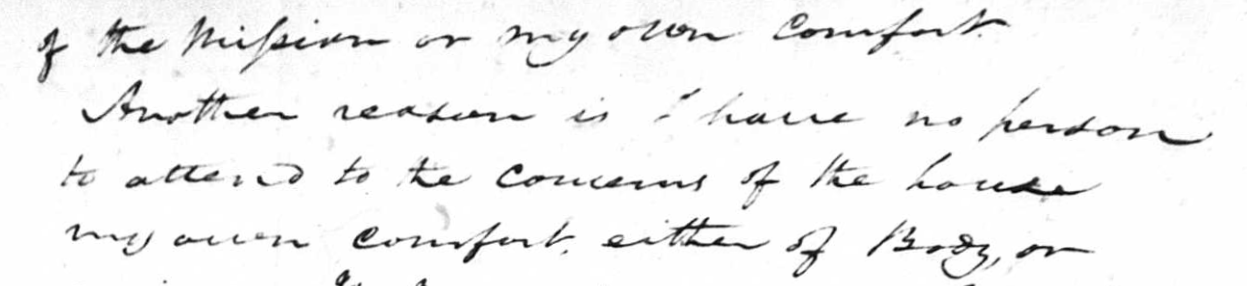 of the Mission or my own comfort
Another reason is I have no person
to attend to the concerns of the house
my own comfort, either of Body, or